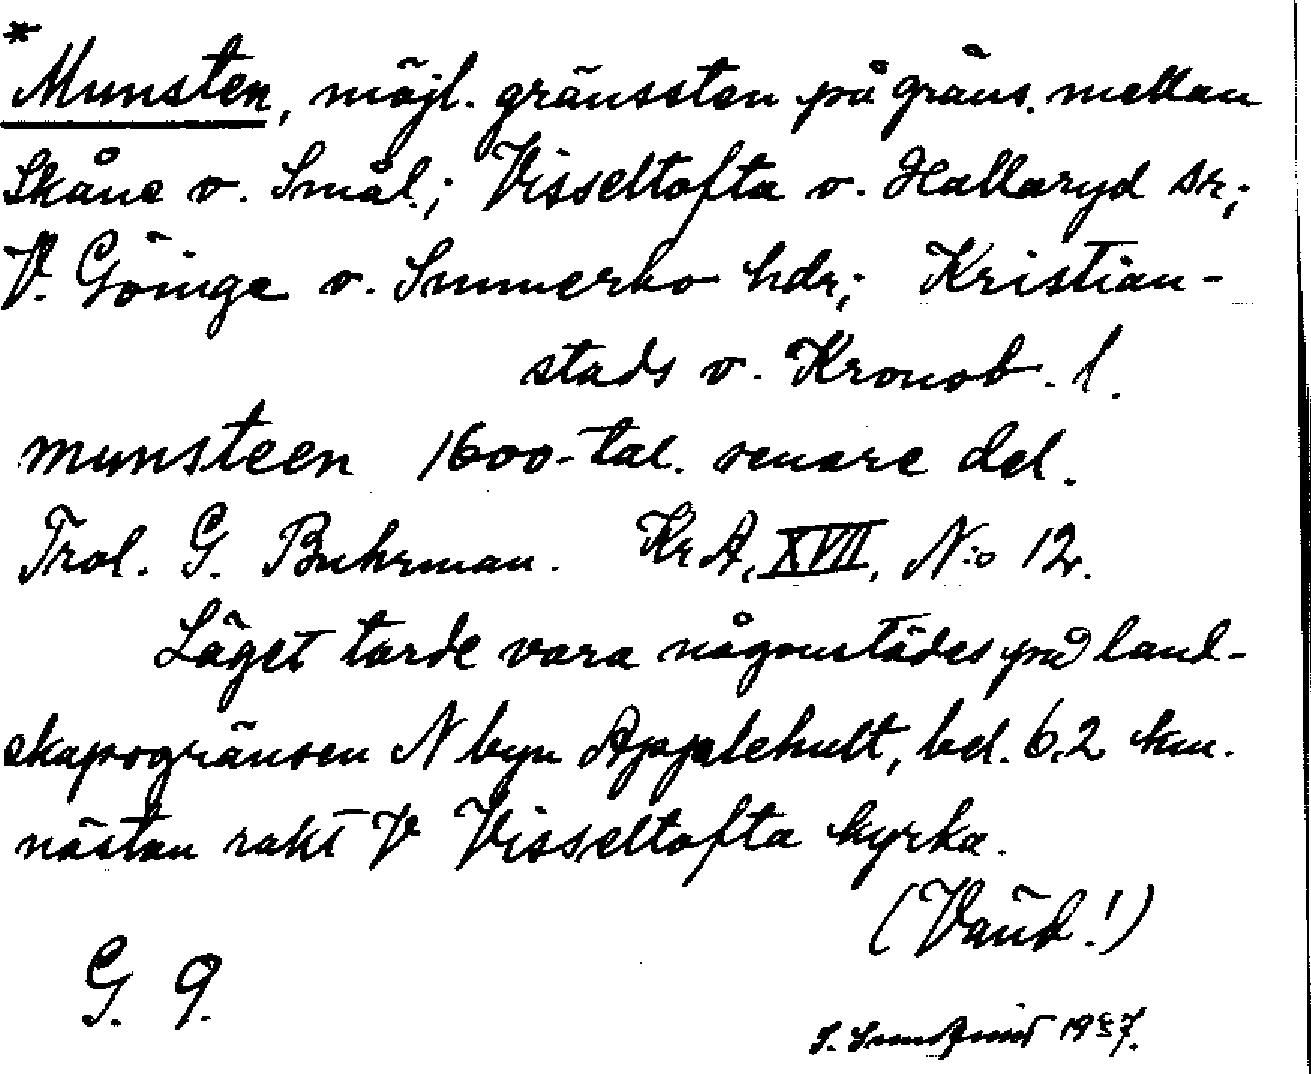 *
Munsten, möjl. gränssten på gräns. mellan
Skåne o. Smål.; Visseltofta o. Hallaryd sr;
V. Göinge o. Sunnerbo hdr; Kristian-
stads o. Kronob. l.
munsteen 1600-tal. senare del.
Trol. G. Buhrman. KrA, XVII, N:o 12.
Läget torde vara någonstädes på land-
skapsgränsen N byn Äpplehult, bel. 6,2 km.
nästan rakt V Visseltofta kyrka.
(Vänd!)
G. 9.
1937.